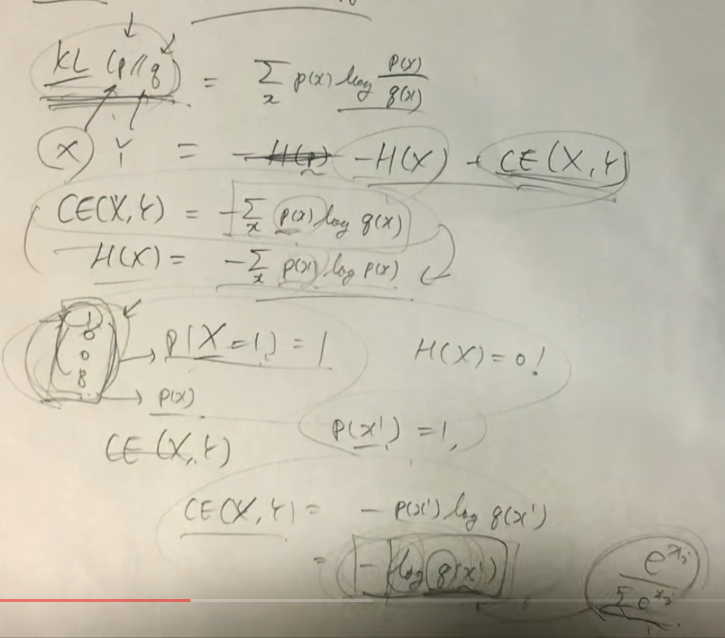 KL (p∥q) = Σ_x p(x) log p(x)/q(x)
X Y = -H(p) -H(X) + CE(X,Y)
CE(X,Y) = -Σ_x p(x) log q(x)
H(X) = -Σ_x p(x) log p(x)
1
0
0
8
→ P(X=1) = 1
H(X)=0!
→ p(x)
CE(X,Y)
p(x') = 1,
CE(X,Y) = - p(x') log q(x')
= - log q(x')
e^{x_j} / Σ e^{x_j}